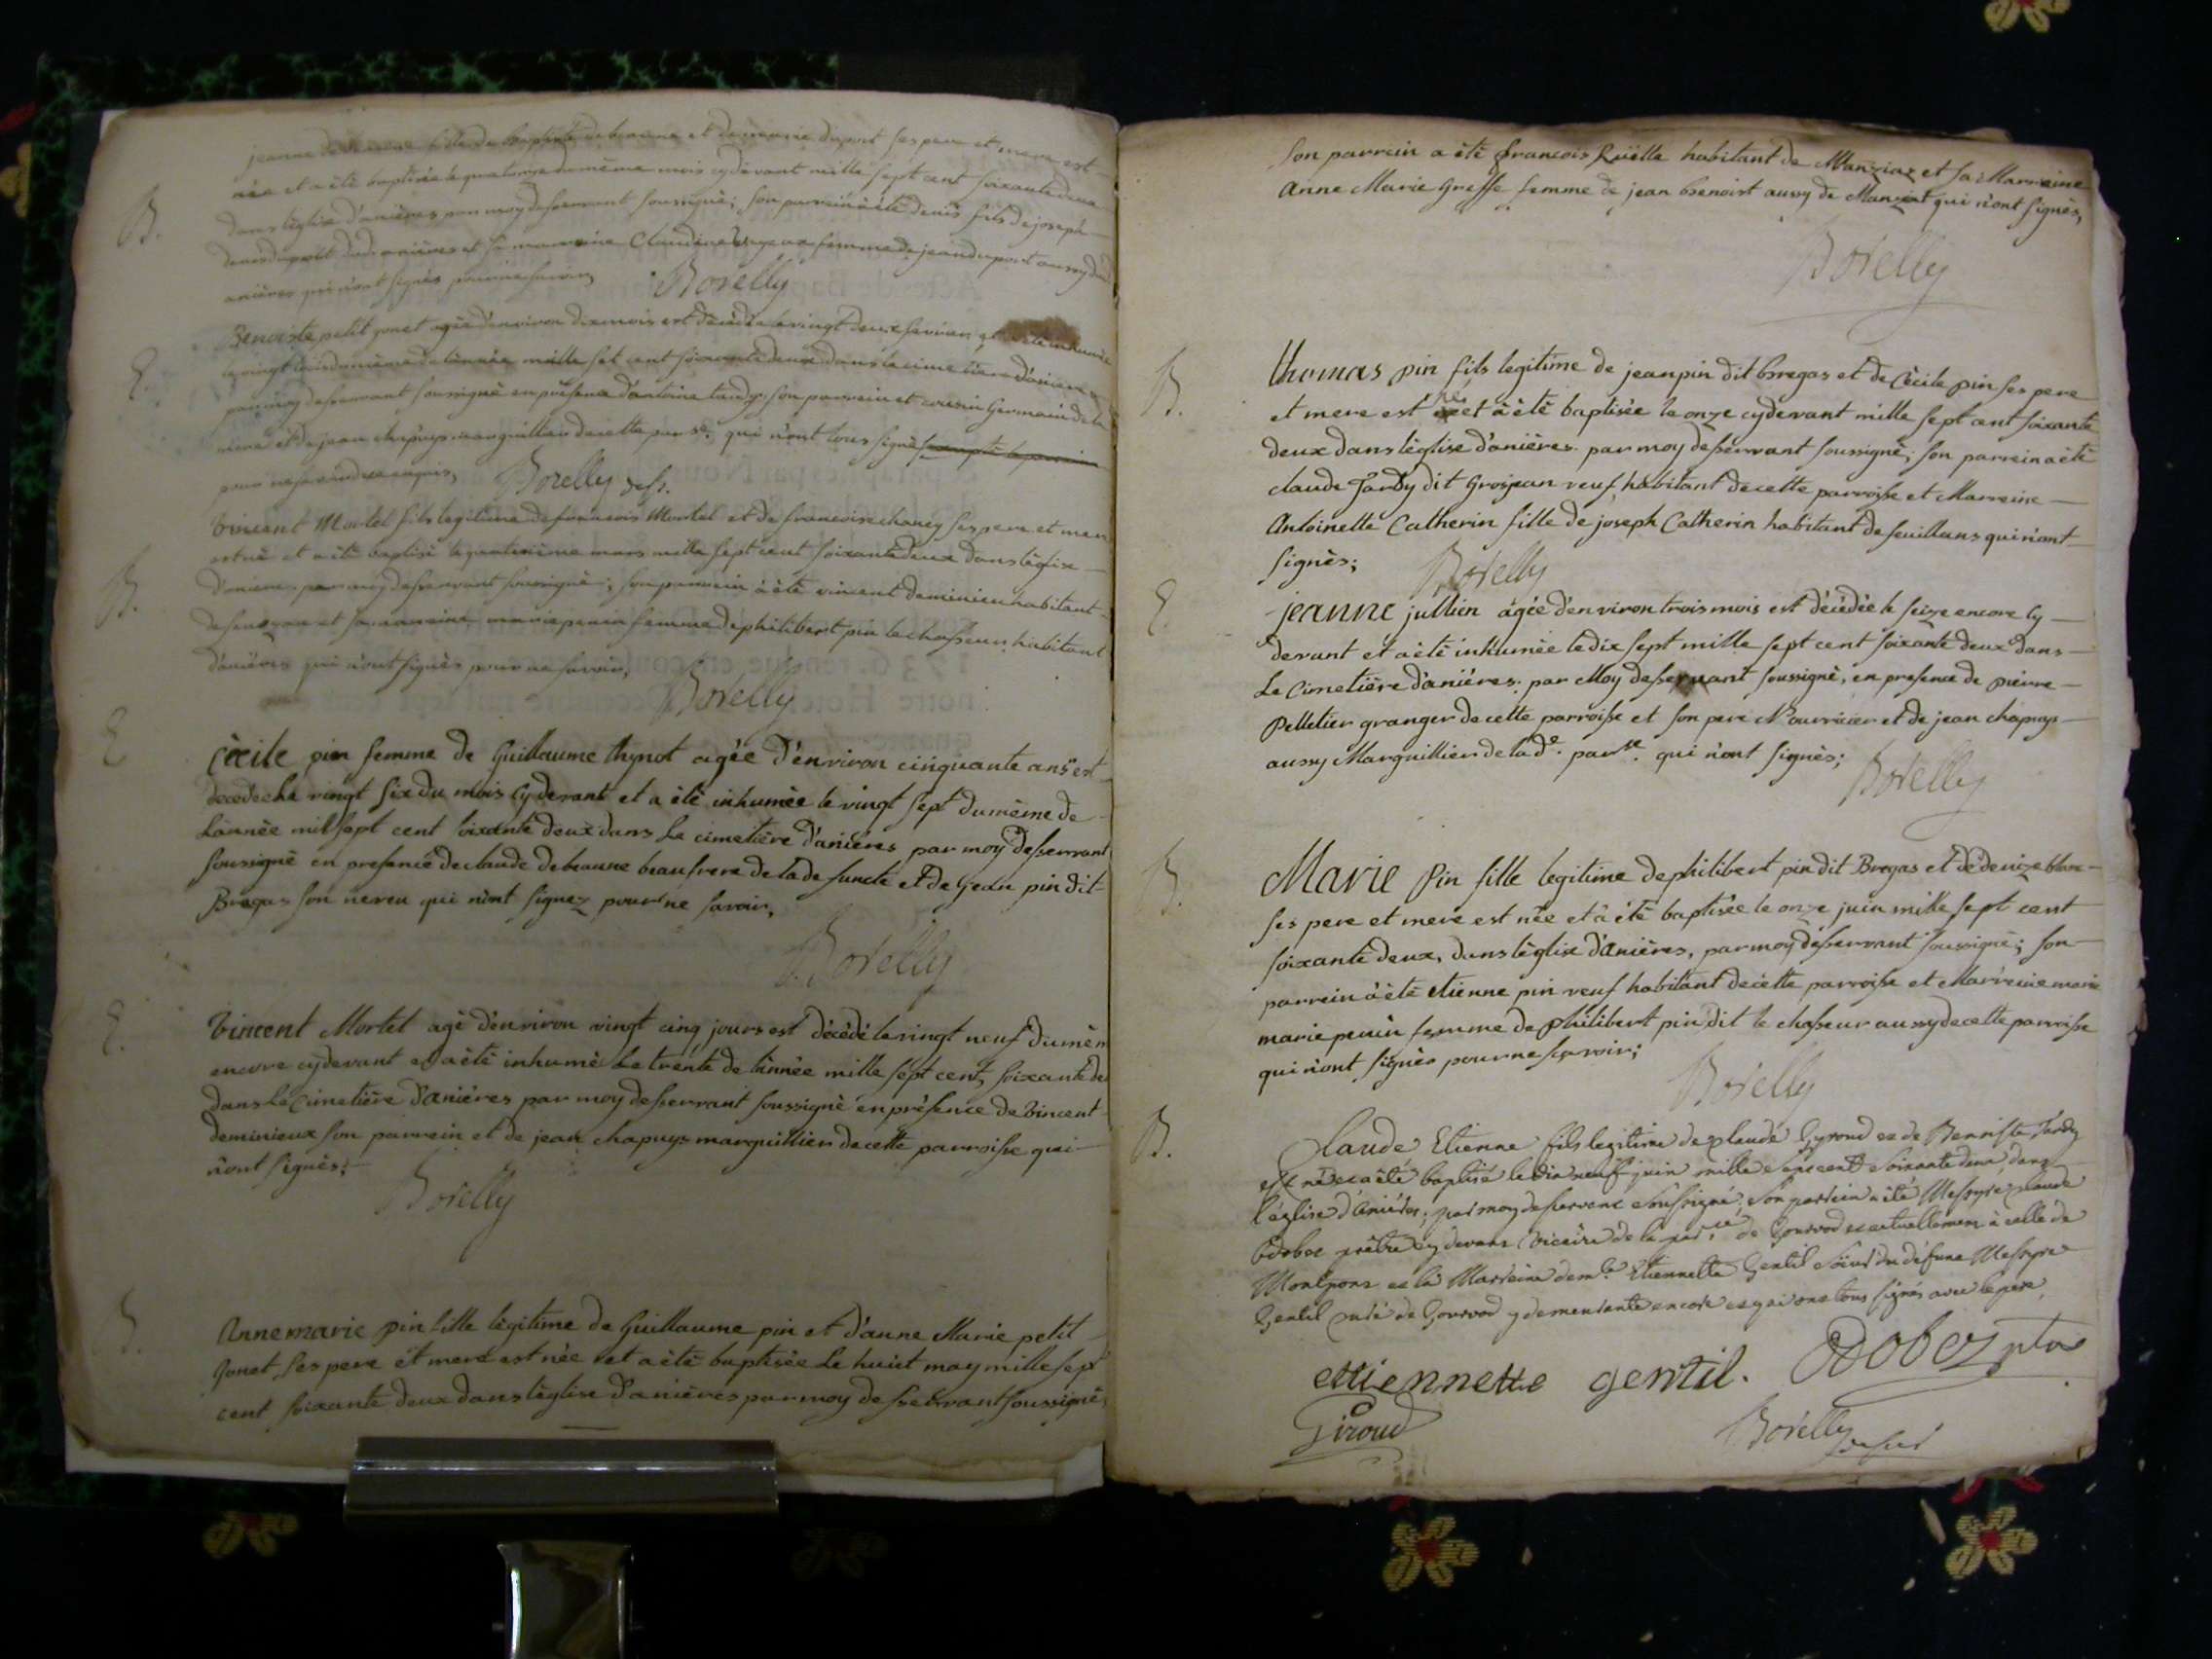 jeanne debeaune fille de baptiste debeaune et demarie duport ses pere et mere est
née et a êté baptisée le quatorze du même mois cydevant mille sept cent soixante deux
B.
dans l'église d'anières par moy desservant soussigné; son parrein à êté denis fils de joseph
denis duport dud. anières et sa marreine Claudine femme de jean duport aussy dud
anières qui n'ont signés pour ne savoir,
Borelly
Benoiste petit jonet agée d'environ dixmois est décédée le vingt deux fevrier et a été inhumée
E.
le vingt trois du même de l'année mille set cent soixante deux dans le cimetière d'anieres
par moy desservant soussigné en présence d'antoine tardy son parrein et cousin Germain de la
mere et de jean chapuys marguillier decette parse. qui n'ont tous signés excepté le parrein
pour ne savoir de ce enquis,
Borelly dess.
Vincent Mortel fils legitime de francois Mortel et de francoise chaney ses pere et mere
est né et a êté baptisé le quatrième mars mille sept cent soixante deux dans l'église
B.
d'anieres par moy desservant soussigné; son parrein à êté vincent deminieux habitant
de et sa marreine marie perrin femme de philibert pin le chasseur habitant
d'anières qui n'ont signés pour ne savoir,
Borelly
E
Cècile pin femme de Guillaume thynot agée d'environ cinquante ans est
decedée le vingt six du mois cydevant et a êté inhumée le vingt sept du même de
L'année mil sept cent soixante deux dans Le cimetière d'anières par moy desservant
soussigné en presence de claude debeaune beaufrere de lade functe et de Jean pin dit
Bregas son neveu qui n'ont signez pour ne savoir,
Borelly
E.
Vincent Mortel agé d'environ vingt cinq jours est décédé le vingt neuf du mêm
encore cydevant et a êté inhumé Le trente de l'année mille sept cent soixante de
dans Le Cimetière d'anières par moy desservant soussigné en présence de Vincent
deminieux son parrein et de jean chapuys marguillier decette parroisse qui
n'ont signés;
Borelly
B.
Anne marie pin fille légitime de Guillaume pin et d'anne Marie petit
Jonet, ses pere et mere est née et a êté baptisée Le huict may mille sept
cent soixante deux dans l'église d'anières par moy desservant soussigné;
Son parrein a êté francois Ruëlle habitant de Manziaz et sa Marreine
Anne Marie Greffe femme de jean benoist aussy de Manziat qui n'ont signés,
Borelly
B.
Thomas pin fils legitime de jean pin dit bregas et de Cècile pin ses pere
et mere est né et à êté baptisée le onze cydevant mille sept cent soixante
deux dans l'église d'anières par moy desservant soussigné; son parrein a êté
claude Tardy dit Grosjean veuf habitant decette parroisse et Marreine
Antoinette Catherin fille de joseph Catherin habitant de feuillans qui n'ont
signés;
Borelly
E.
jeanne jullien agée d'environ trois mois est décédée le seize encore cy
devant et a êté inhumée le dix sept mille sept cent soixante deux dans
Le Cimetière d'anières par Moy desservant soussigné, en presence de pierre
Pelletier granger decette parroisse et son pere Nourricier et de jean chapuys
aussy Marguillier de lade. parse. qui n'ont signés;
Borelly
B.
Marie Pin fille legitime de philibert pin dit Bregas et de denize
ses pere et mere est née et à êté baptisée le onze juin mille sept cent
soixante deux, dans l'église d'anières, par moy desservant soussigné; son
parrein à êté etienne pin veuf habitant decette parroisse et Marreine marie
marie perrin femme de philibert pin dit le chasseur aussy decette parroisse
qui n'ont signés pour ne sçavoir;
Borelly
B.
Claude Etienne fils legitime de claude Gyroud et de Benoiste Tardy
est né et a été baptisé le dix neuf juin mille sept cent soixante deux, dans
l'église d'Anières; par moy desservant soussigné; son parrein a été Messyre claude
Odobez prêtre cy devant vicaire de la parse de Gorrevod et actuellement à celle de
Montpont et la Marreine demle. Etiennette Gentil soeur du défunt Messyre
Gentil curé de Gorrevod y demeurante encore et qui ont tous signés avec le pere,
ettiennette gentil. Odobez ptre
Giroud
Borelly dessert